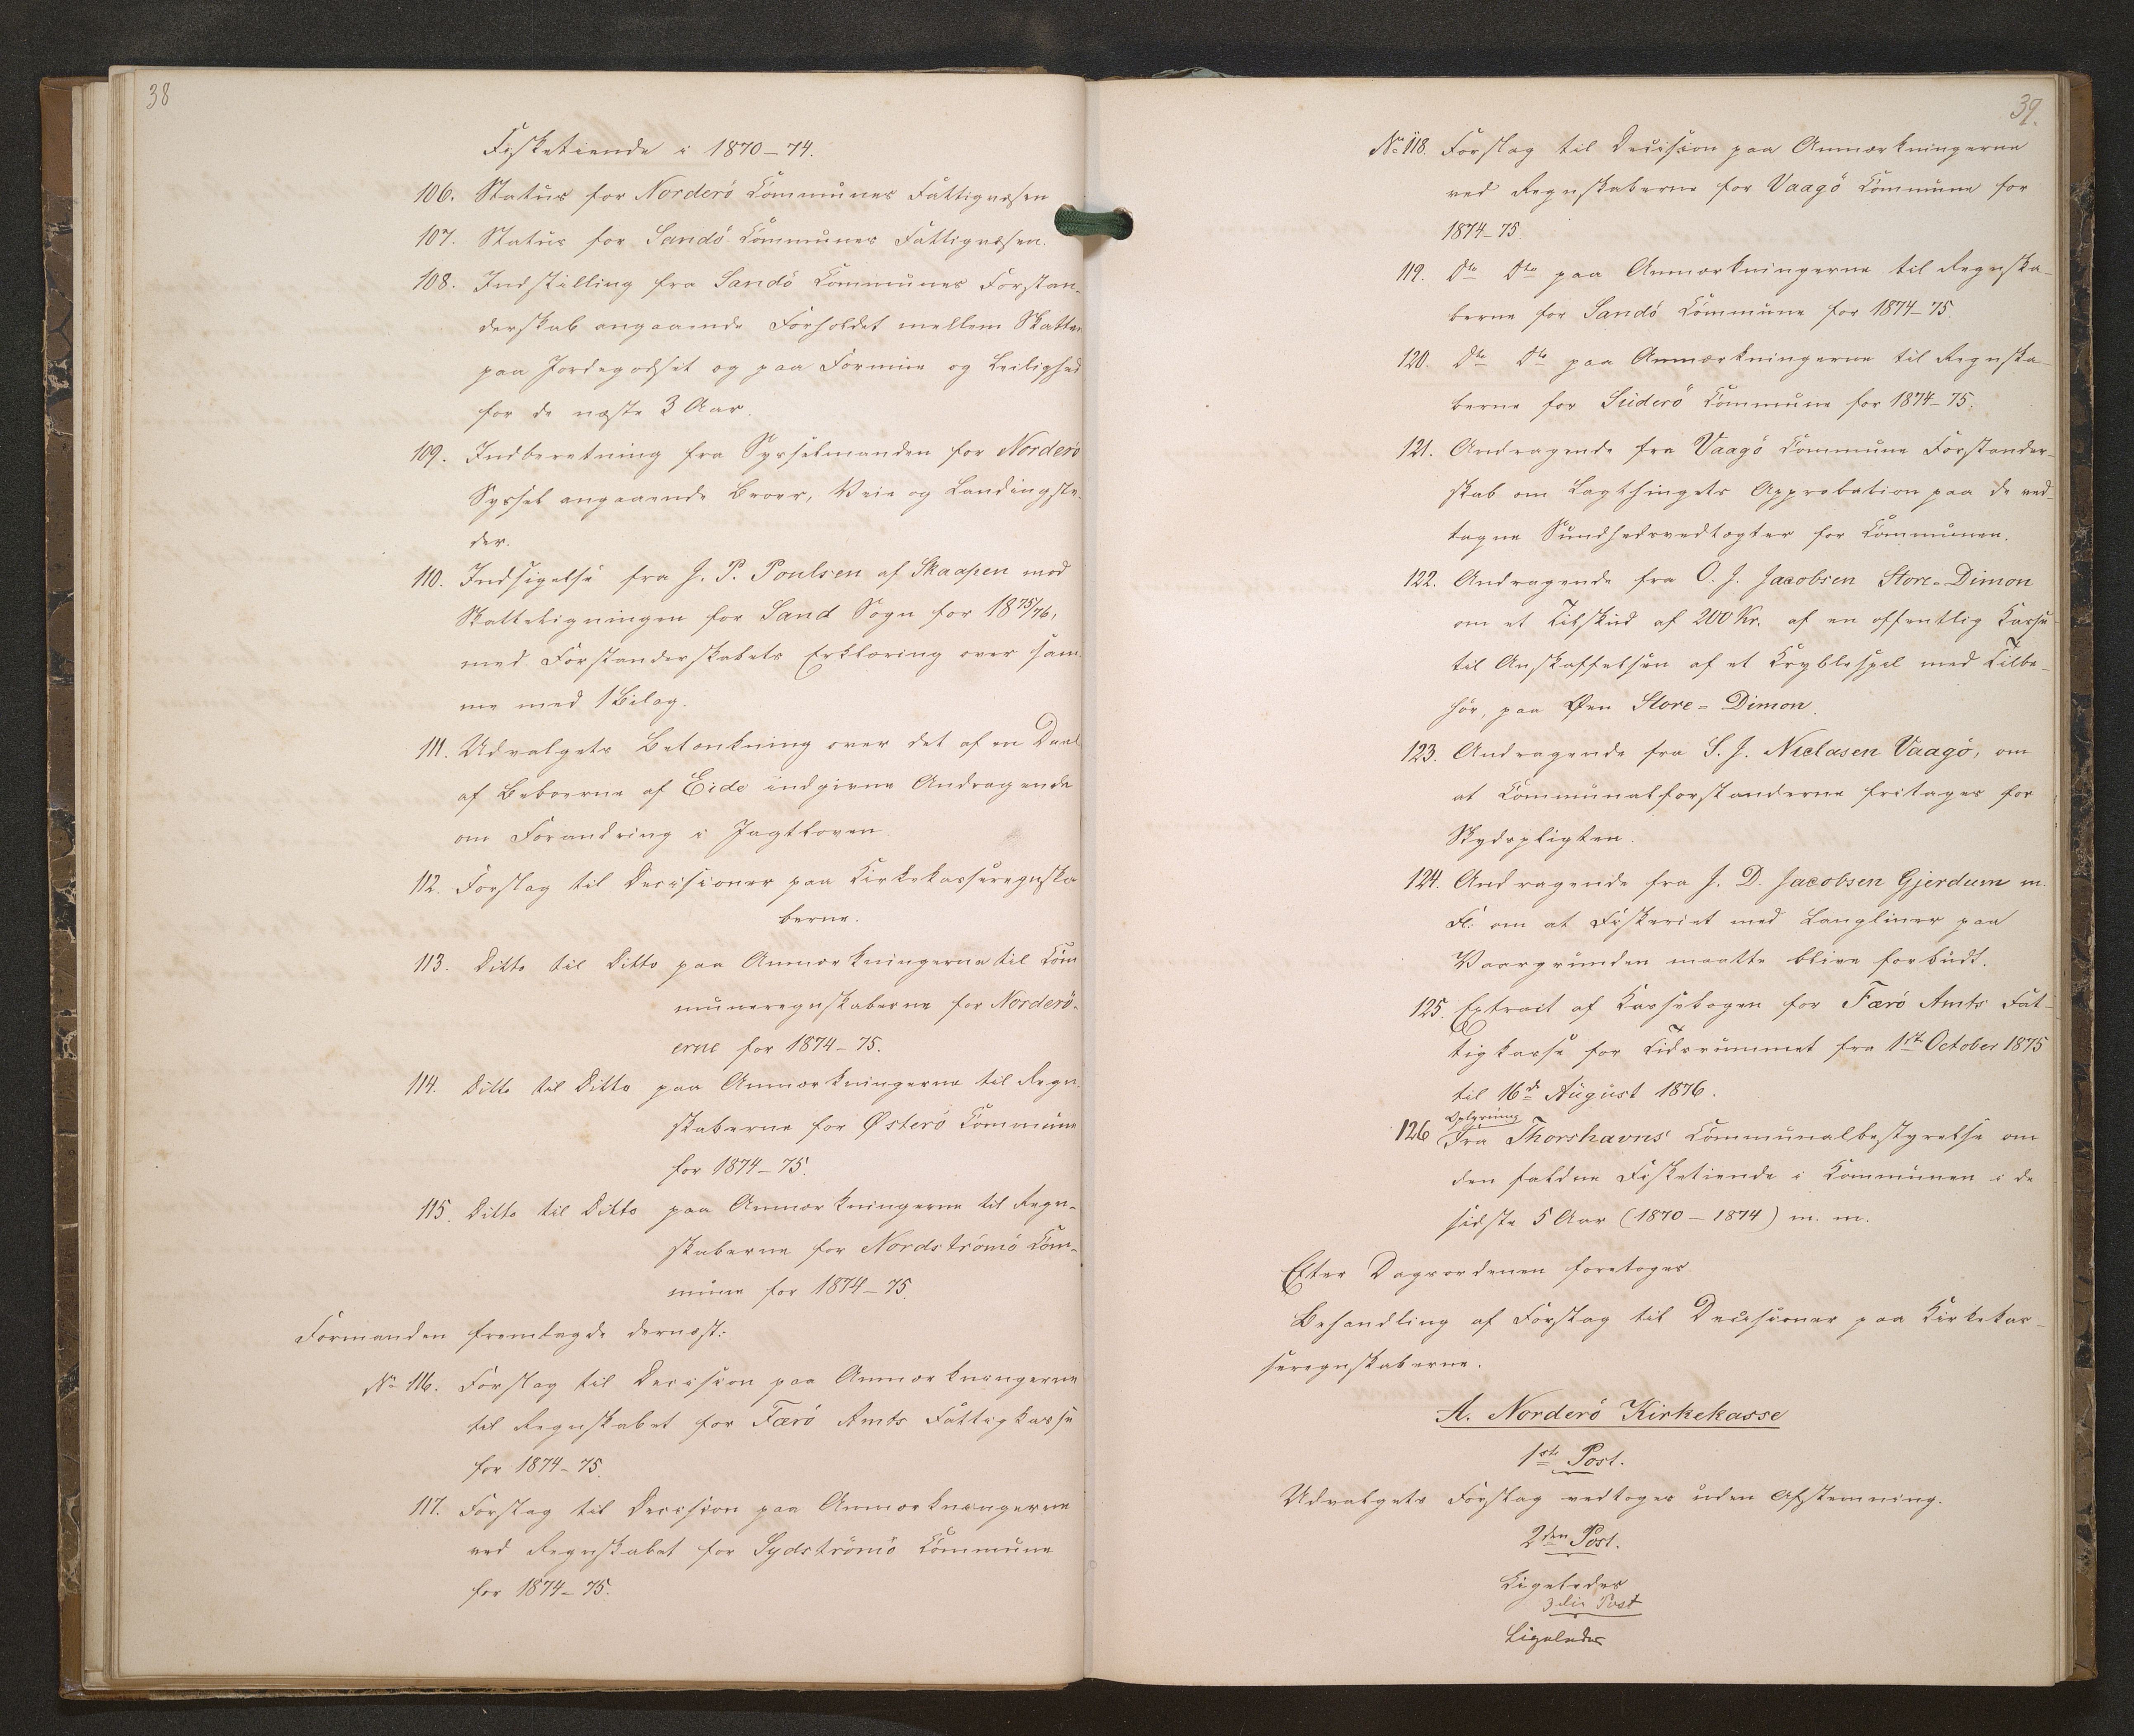 38
Fisketiende i 1870–74.
106. Status for Norderö Communes Fattigvæsen
107. Status for Sandö Communes Fattigvæsen.
108. Indstilling fra Sandö Communes Forstan-
derskab angaaende Forholdet mellem Skatten
paa Jordegodset og paa Formue og Leilighed
for de næste 3 Aar.
109. Indberetning fra Sysselmanden for Norderö
Syssel angaaende Broer, Veie og Landingste-
der.
110. Indsigelse fra J. P. Poulsen af Skaapen mod
Skatteligningen for Sand Sogn for 1875/76,
med Forstanderskabets Erklæring over sam-
me med 1 Bilag.
111. Udvalgets Betænkning over det af en Deel
af Beboerne af Eide indgivne Andragende
om Forandring i Jagtloven.
112. Forslag til Decisioner paa Kirkekasseregnska
berne.
113. Ditto til Ditto paa Anmærkningerne til Com
muneregnskaberne for Norderö-
erne for 1874–75.
114. Ditto til Ditto paa Anmærkningerne til Regn-
skaberne for Österö Commune
for 1874–75.
115. Ditto til Ditto paa Anmærkningerne til Regn-
skaberne for Nordströmö Com-
mune for 1874–75.
Formanden fremlagde dernæst:
No 116. Forslag til Decision paa Anmærkningerne
til Regnskabet for Færö Amts Fattigkasse
for 1874–75.
117. Forslag til Decision paa Anmærkningerne
ved Regnskabet for Sydströmö Commune
for 1874–75.
39.
No 118. Forslag til Decision paa Anmærkningerne
ved Regnskaberne for Vaagö Commune for
1874–75.
119. Dto Dto paa Anmærkningerne til Regnska-
berne for Sandö Commune for 1874–75.
120. Dto Dto paa Anmærkningerne til Regnska-
berne for Suderö Commune for 1874–75.
121. Andragende fra Vaagö Commune Forstander-
skab om Lagthingets Approbation paa de ved-
tagne Sundhedsvedtægter for Communen.
122. Andragende fra O. J. Jacobsen Store-Dimon
om et Tilskud af 200 Kr. af en offentlig Kasse
til Anskaffelsen af et Kryblespil med Tilbe-
hör, paa Øen Store-Dimon.
123. Andragende fra S. J. Niclasen Vaagö, om
at Communalforstanderne fritages for
Skydspligten.
124. Andragende fra J. D. Jacobsen Gjerdum m.
Fl. om at Fiskeriet med Langliner paa
Vaargrunden maatte blive forbudt.
125. Extract af Kassebogen for Færö Amts Fat-
tigkasse for Tidsrummet fra 1ste October 1875
til 16de August 1876.
Oplysning
126 Fra Thorshavns Communalbestyrelse om
den faldne Fisketiende i Communen i de
sidste 5 Aar (1870–1874) m. m.
Efter Dagsordenen foretoges
Behandling af Forslag til Decisioner paa Kirkekas-
seregnskaberne.
A. Norderö Kirkekasse
1ste Post.
Udvalgets Forslag vedtoges uden Afstemning.
2den Post.
Ligeledes
3die Post
Ligeledes